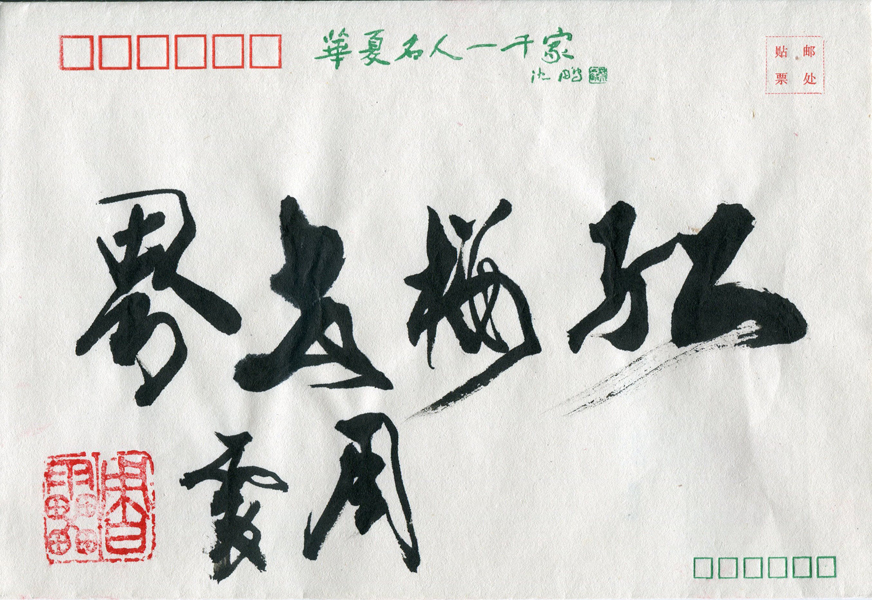 華夏名人一千家
沈鹏
贴邮
票处
红梅 界
周